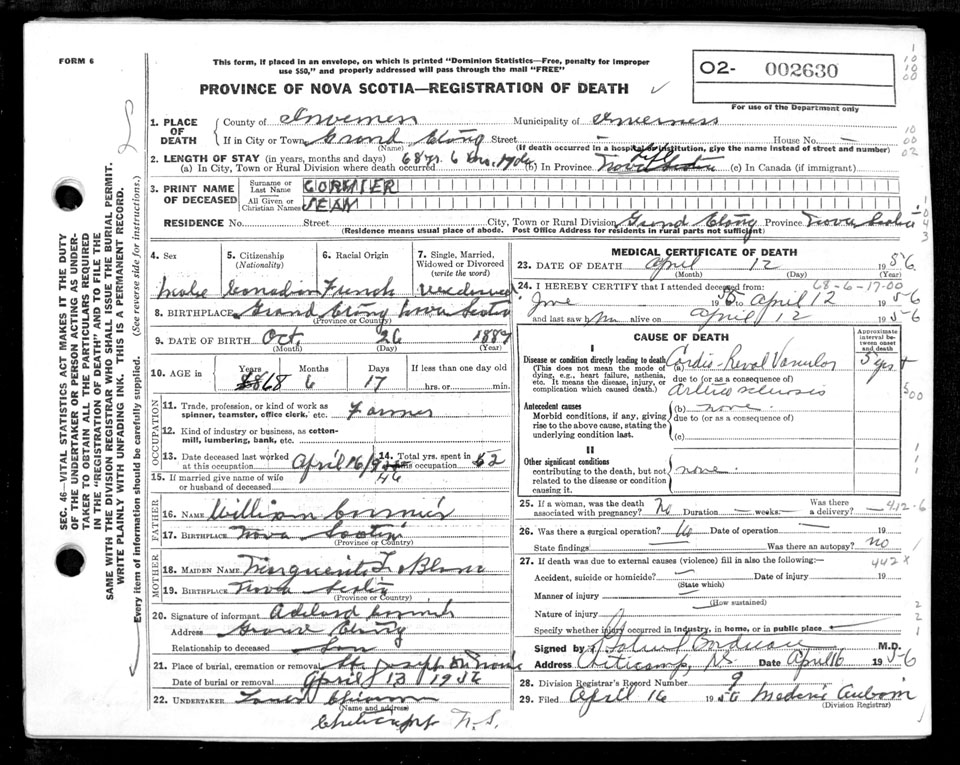 FORM 6
This form, if placed in an envelope, on which is printed "Dominion Statistics—Free, penalty for improper
use $50," and properly addressed will pass through the mail "FREE"
PROVINCE OF NOVA SCOTIA—REGISTRATION OF DEATH
O2- 002630
For use of the Department only
1. PLACE OF DEATH
County of Inverness Municipality of Inverness
If in City or Town Grand Etang Street — House No. —
(Name) (If death occurred in a hospital or institution, give the name instead of street and number)
2. LENGTH OF STAY (in years, months and days)
(a) In City, Town or Rural Division where death occurred 68 yrs. 6 17 (b) In Province Nova Scotia (c) In Canada (if immigrant)
3. PRINT NAME OF DECEASED
Surname or Last Name CORMIER
All Given or Christian Names JEAN
RESIDENCE No. Street City, Town or Rural Division Grand Etang Province Nova Scotia
(Residence means usual place of abode. Post Office Address for residents in rural parts not sufficient)
4. Sex Male
5. Citizenship (Nationality) Canadian
6. Racial Origin French
7. Single, Married, Widowed or Divorced (write the word)
8. BIRTHPLACE Grand Etang Nova Scotia
(Province or Country)
9. DATE OF BIRTH Oct. 26 1887
(Month) (Day) (Year)
10. AGE in Years 68 Months 6 Days 17 If less than one day old hrs. or min.
OCCUPATION
11. Trade, profession or kind of work as spinner, teamster, office clerk, etc. Farmer
12. Kind of industry or business, as cotton-mill, lumbering, bank, etc.
13. Date deceased last worked at this occupation April 16/9 46
14. Total yrs. spent in this occupation 52
15. If married give name of wife or husband of deceased
FATHER
16. NAME William Cormier
17. BIRTHPLACE Nova Scotia
(Province or Country)
MOTHER
18. MAIDEN NAME Marguerite LeBlanc
19. BIRTHPLACE Nova Scotia
(Province or Country)
20. Signature of informant Adelard Cormier
Address Grand Etang
Relationship to deceased Son
21. Place of burial, cremation or removal St. Joseph Du Moine
Date of burial or removal April 13 1956
22. UNDERTAKER
(Name and address)
Cheticamp N.S.
MEDICAL CERTIFICATE OF DEATH
23. DATE OF DEATH April 12 1956
(Month) (Day)
68-6-17-00
24. I HEREBY CERTIFY that I attended deceased from
June 1950 to April 12 1956
and last saw him alive on April 12 1956
CAUSE OF DEATH
Approximate interval between onset and death
I
Disease or condition directly leading to death
(This does not mean the mode of dying, e.g., heart failure, asthenia, etc. It means the disease, injury, or complication which caused death.)
(a) Cardio Renal Vascular 5 yrs +
due to (or as a consequence of)
Arteriosclerosis
Antecedent causes
Morbid conditions, if any, giving rise to the above cause, stating the underlying condition last.
(b) none
due to (or as a consequence of)
(c)
II
Other significant conditions
contributing to the death, but not related to the disease or condition causing it.
none
25. If a woman, was the death associated with pregnancy? No Duration — weeks. Was there a delivery? —
412-6
26. Was there a surgical operation? No Date of operation — 19
State findings Was there an autopsy? no
27. If death was due to external causes (violence) fill in also the following:—
442 x
Accident, suicide or homicide? — Date of injury 19
(State which)
Manner of injury —
(How sustained)
Nature of injury
Specify whether injury occurred in industry, in home, or in public place
Signed by M.D.
Address Cheticamp, NS Date April 16 1956
28. Division Registrar's Record Number 9
29. Filed April 16 1956 Mederic Aucoin
(Division Registrar)
SEC. 46—VITAL STATISTICS ACT MAKES IT THE DUTY
OF THE UNDERTAKER OR PERSON ACTING AS UNDER-
TAKER TO OBTAIN ALL THE PARTICULARS REQUIRED
IN THE "REGISTRATION OF DEATH" AND TO FILE THE
SAME WITH THE DIVISION REGISTRAR WHO SHALL ISSUE THE BURIAL PERMIT.
WRITE PLAINLY WITH UNFADING INK. THIS IS A PERMANENT RECORD.
Every item of information should be carefully supplied. (See reverse side for instructions.)